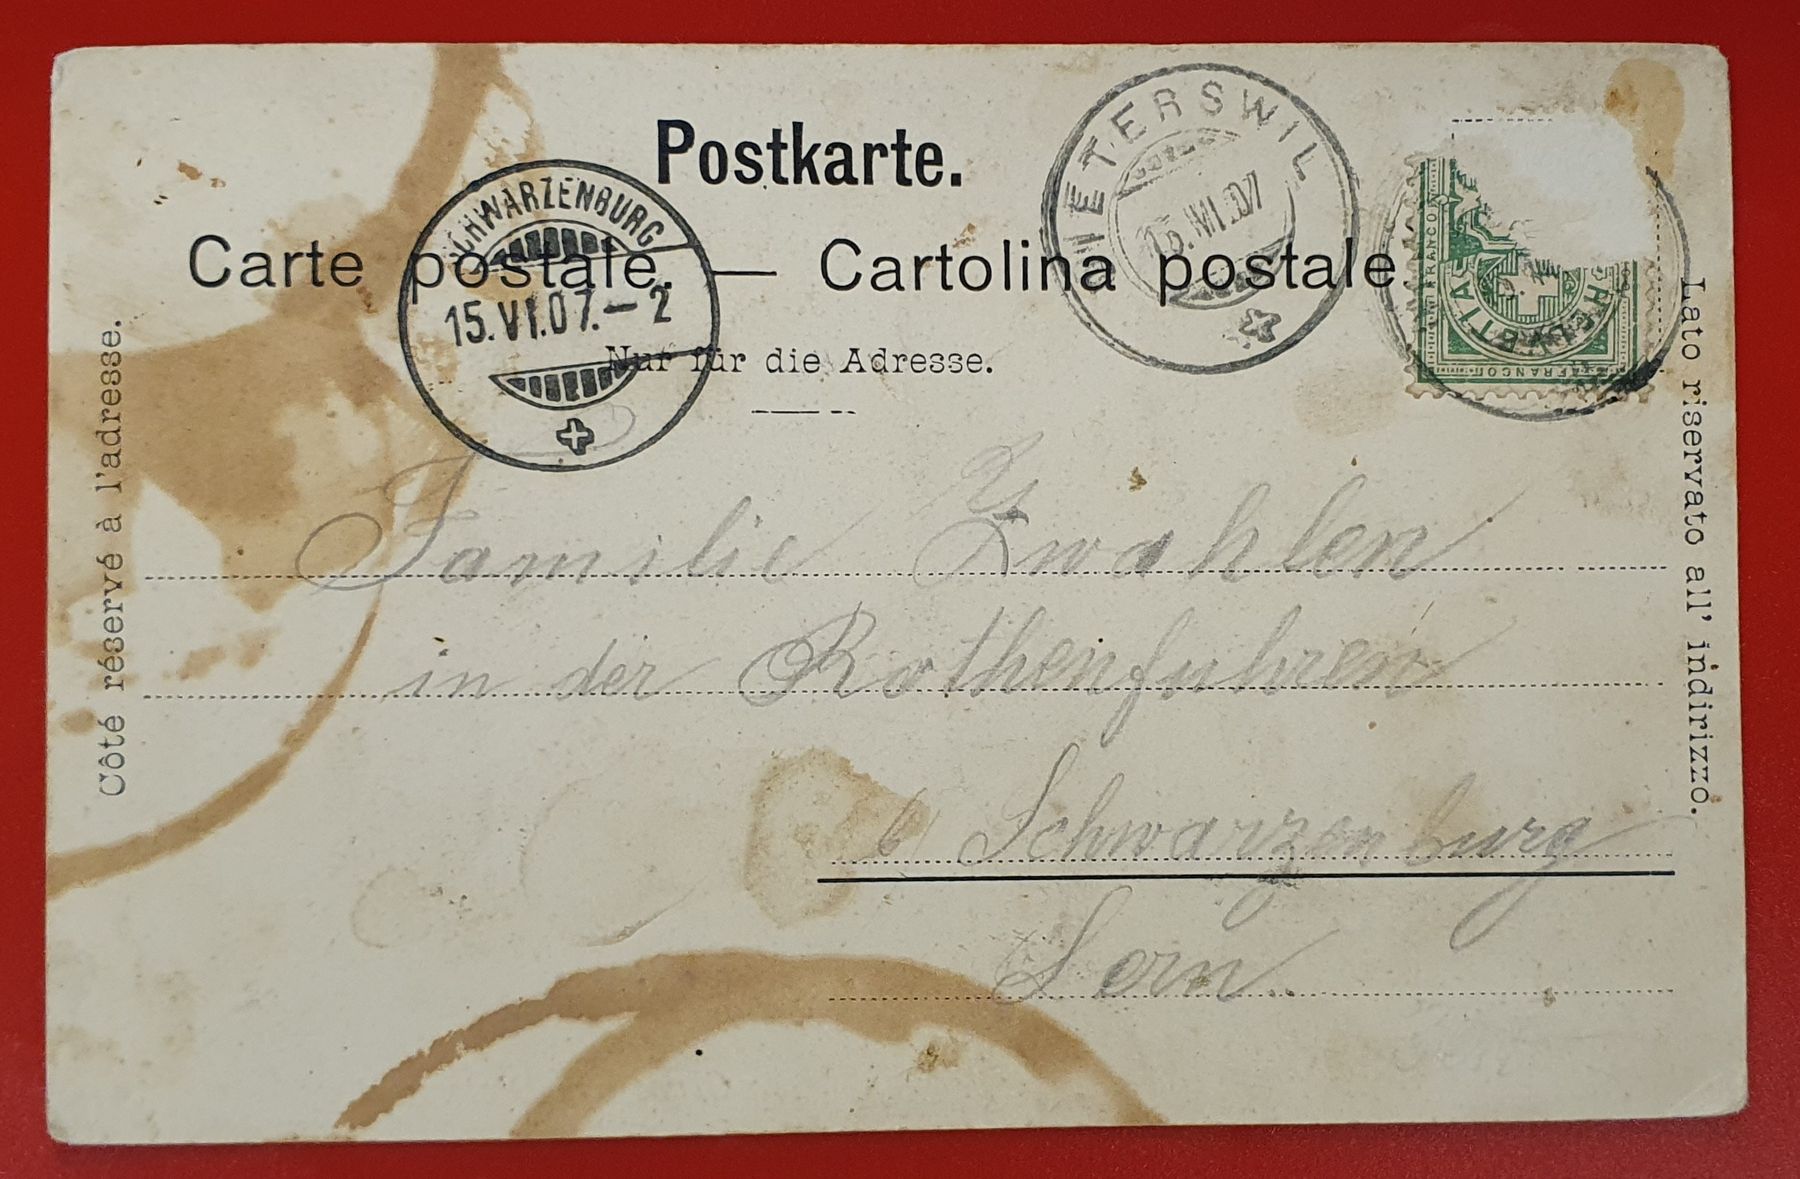 Postkarte.
Carte postale. — Cartolina postale
Nur für die Adresse.
Côté réservé à l'adresse.
Lato riservato all' indirizzo.
SCHWARZENBURG
15.VI.07.–2
IETERSWIL
15.VI.07
FRANCO
HELVETIA
FRANCO
Familie Zwahlen
in der Rothenfuhren
b/ Schwarzenburg
Bern.